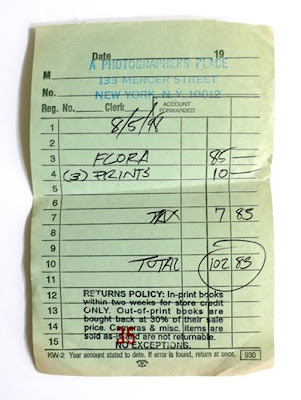 Date 19
A PHOTOGRAPHER'S PLACE
M
133 MERCER STREET
No.
NEW YORK, N.Y. 10012
Reg. No. Clerk ACCOUNT FORWARDED
1 8/5/98
2
3 FLORA 85
4 (3) PRINTS 10
5
6
7 TAX 7 85
8
9
10 TOTAL 102 85
11
12 RETURNS POLICY: In-print books
within two weeks for store credit
13 ONLY. Out-of-print books are
bought back at 30% of their sale
14 price. Cameras & misc. items are
sold as-is and are not returnable.
15 NO EXCEPTIONS.
35
KW-2 Your account stated to date. If error is found, return at once. 930